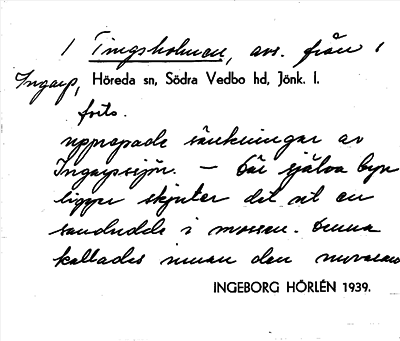 1 Tingsholmen, avs. från 1
Ingarp, Höreda sn, Södra Vedbo hd, Jönk. l.
forts.
upprepade sänkningar av
Ingarpssjön. – Där själva byn
ligger skjuter det ut en
sandudde i mossen. Denna
kallades innan den nuvaran
INGEBORG HÖRLÉN 1939.